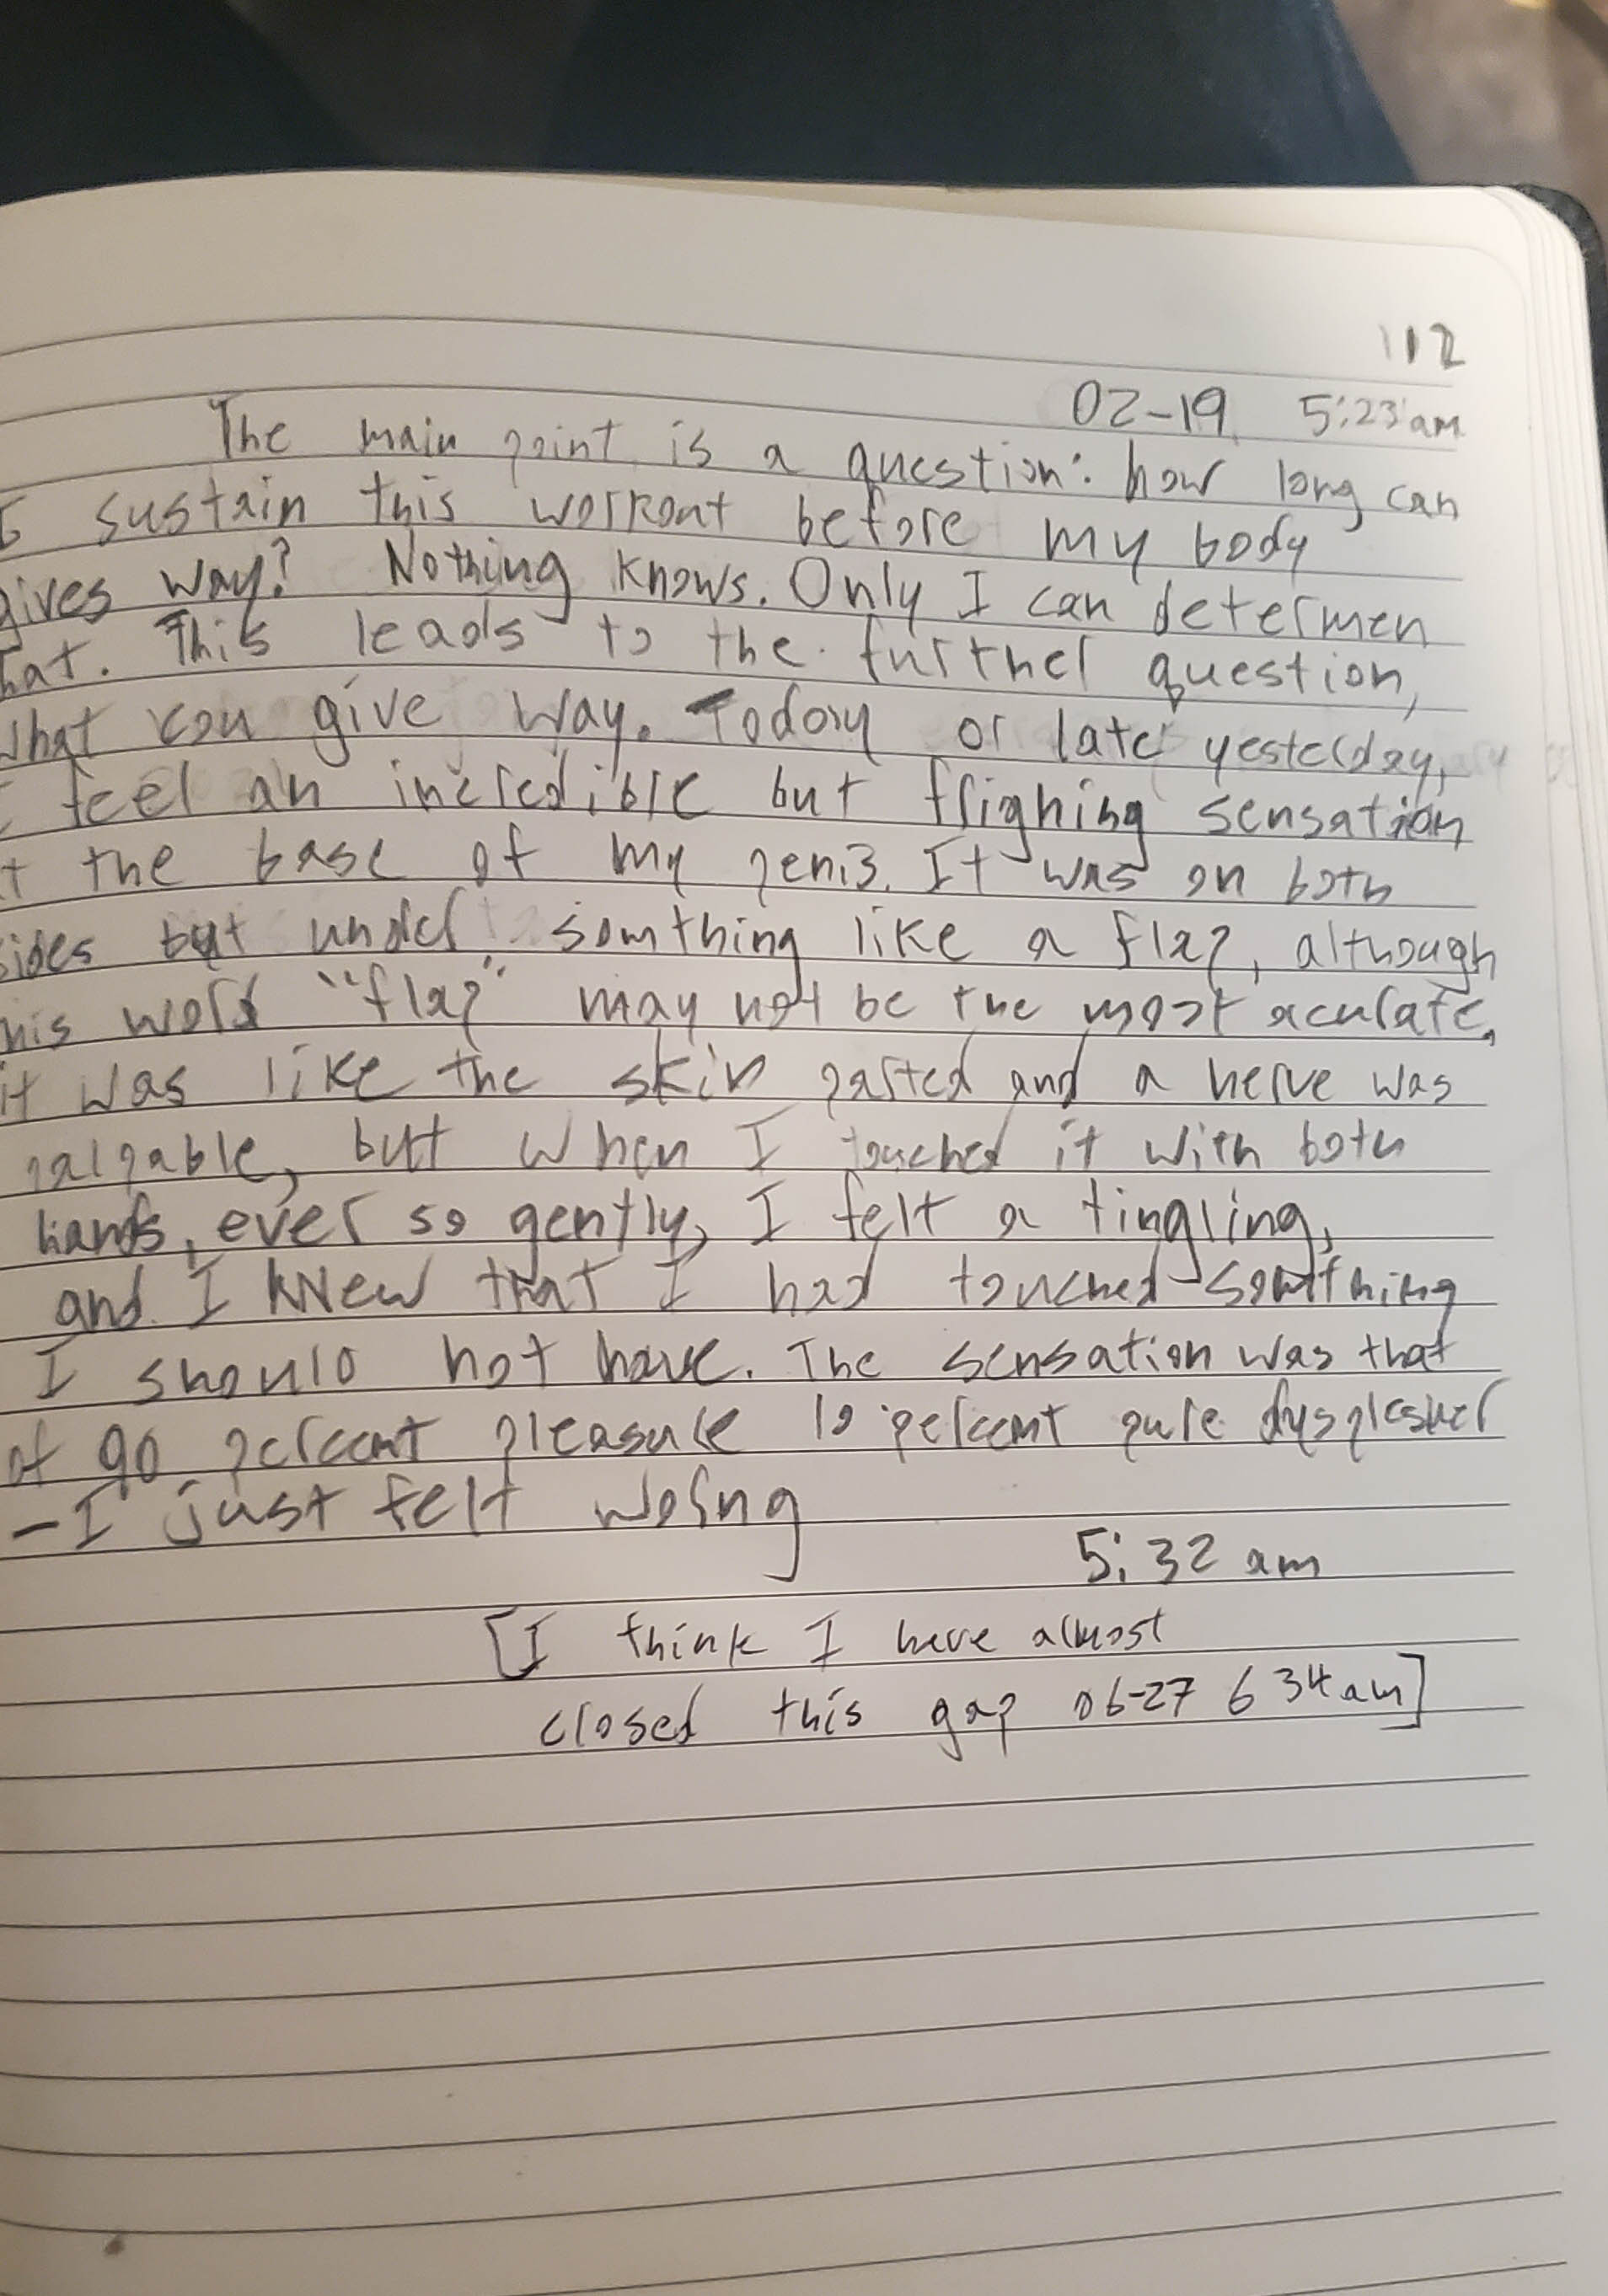 112
02-19 5:23 am
The main point is a question: how long can
I sustain this workout before my body
gives way? Nothing knows. Only I can determen
hat. This leads to the further question,
what can give way. Today or late yesterday,
I feel an incredible but frighing sensation
t the base of my penis. It was on both
sides but under somthing like a flap, although
his word "flap" may not be the most acurate,
it was like the skin parted and a nerve was
palpable, but when I touched it with both
hands, ever so gently, I felt a tingling,
and I knew that I had touched somthing
I should not have. The sensation was that
of 90 percent pleasure 10 percent pure dysplesuer
– I just felt worng
5:32 am
[I think I have almost
closed this gap 06-27 6 34 am]